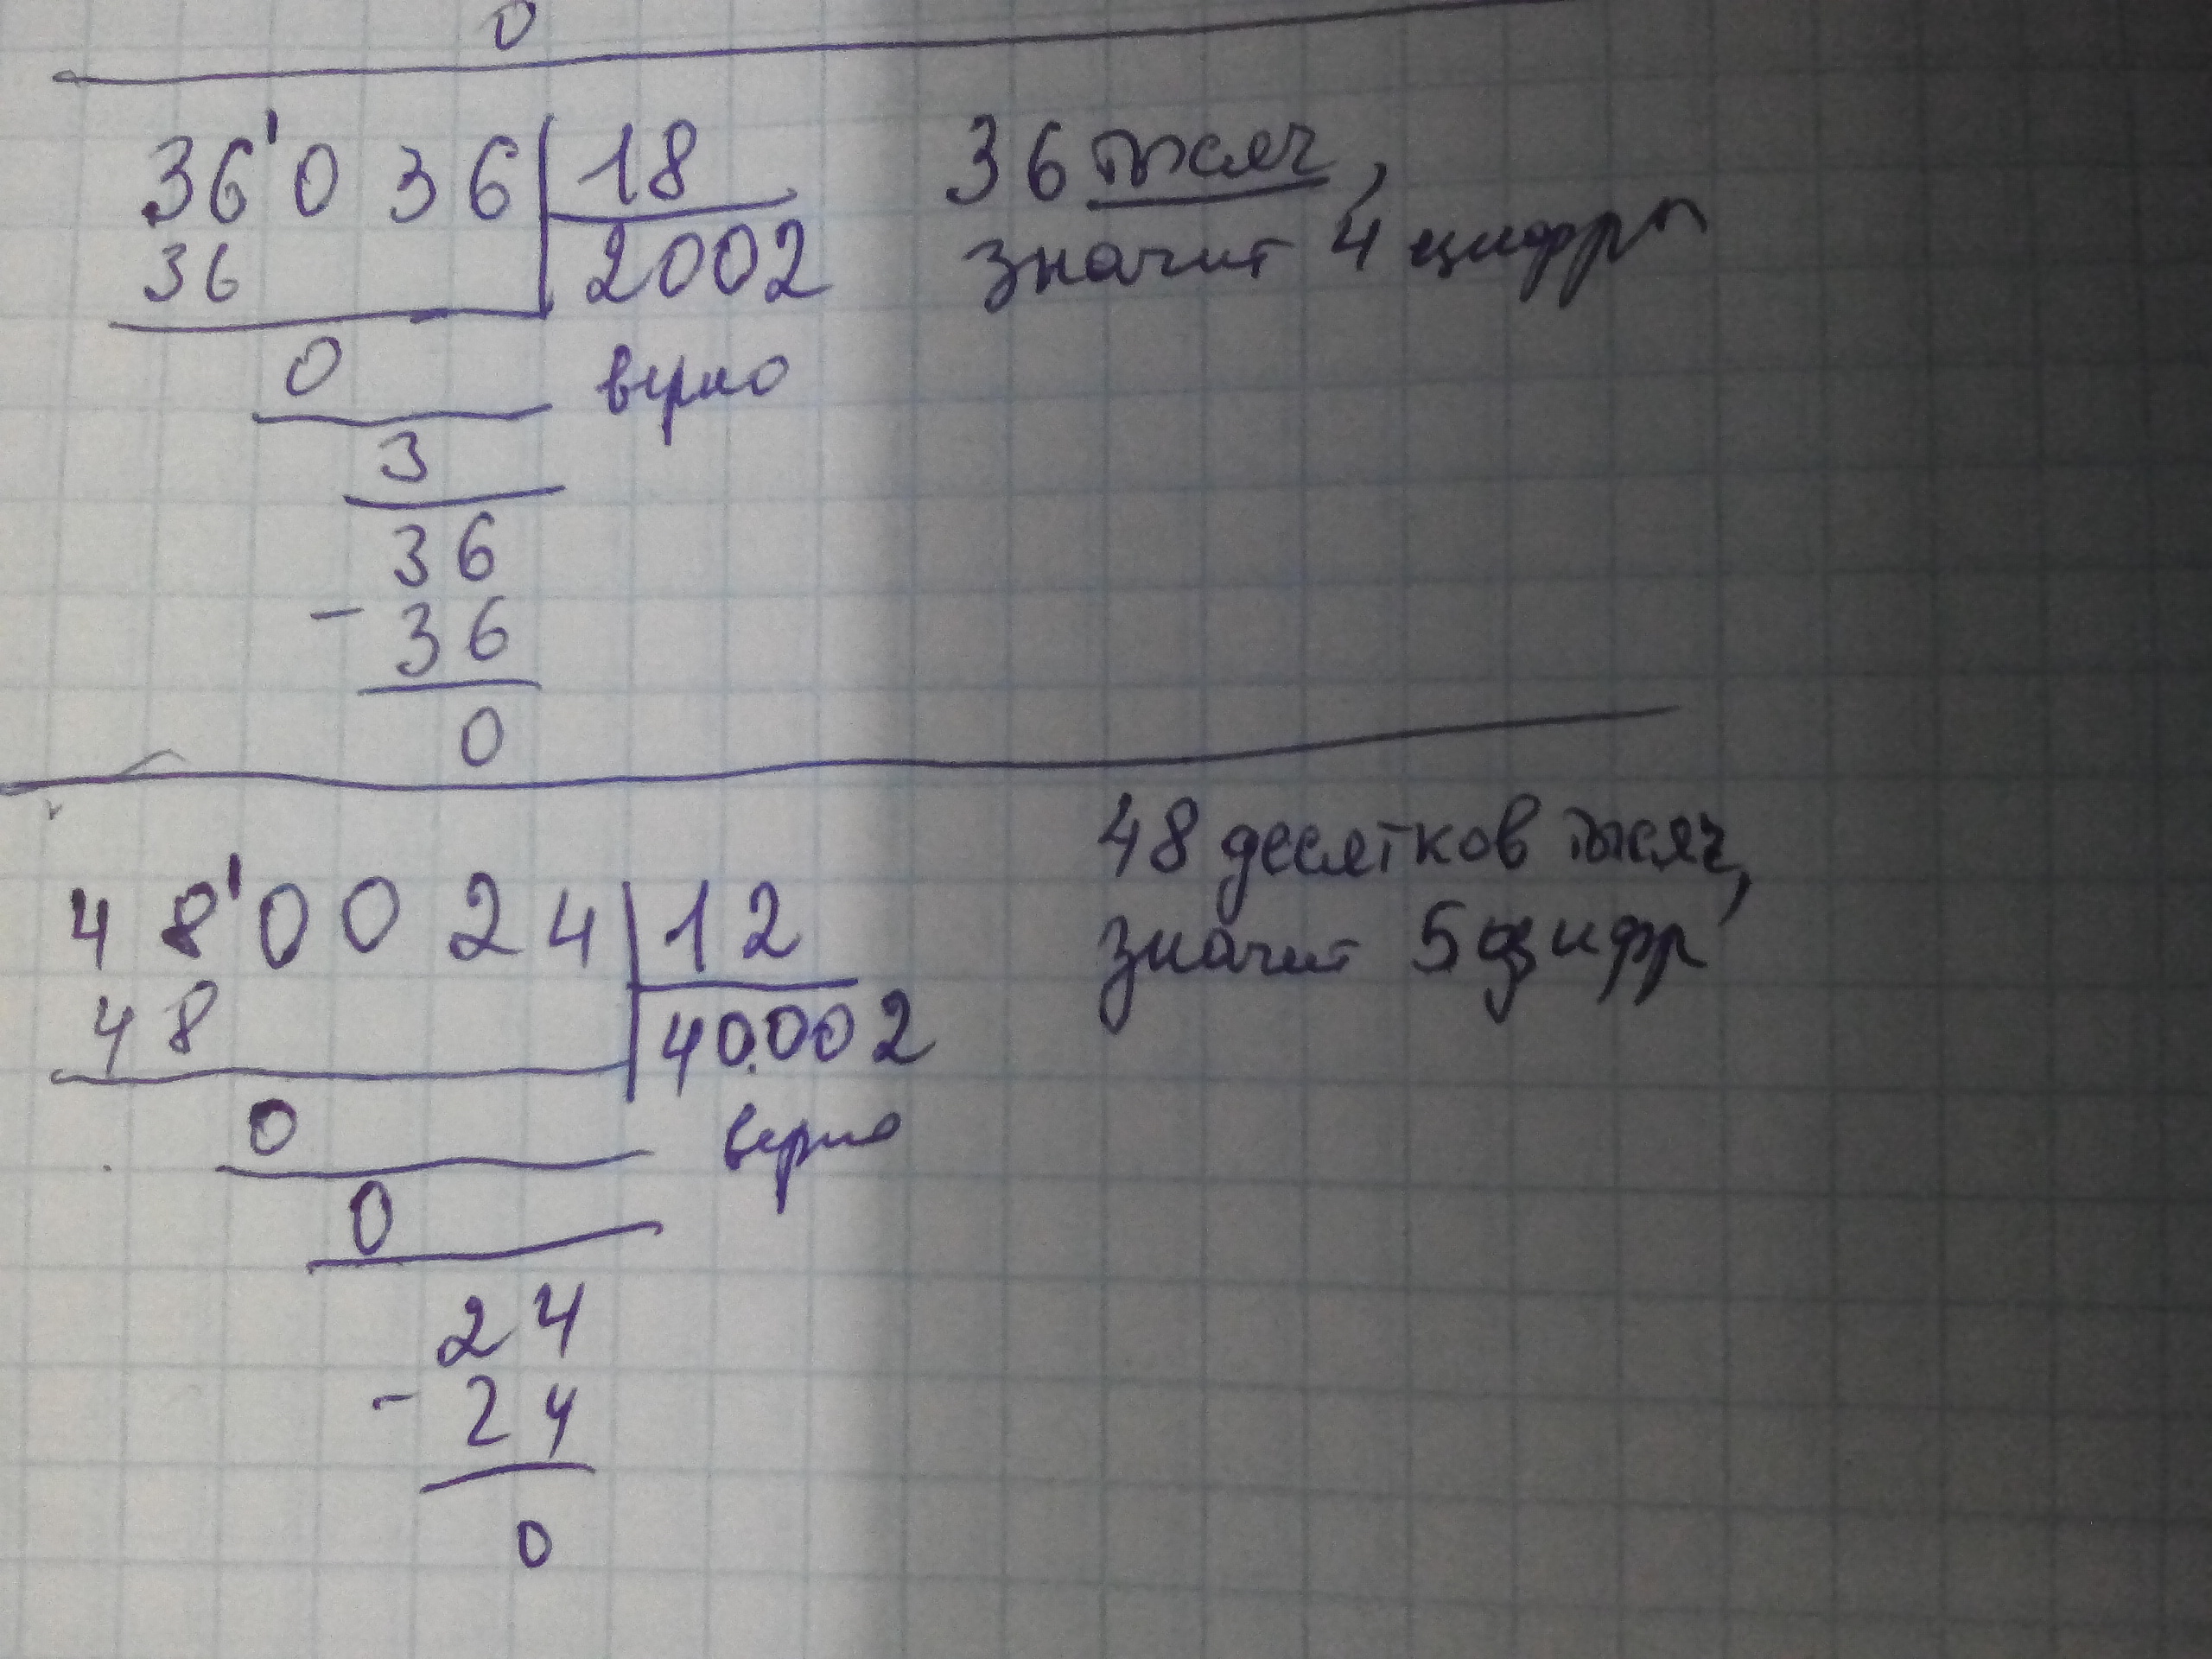 0
36'036 18 36 тысяч,
36 2002 значит 4 цифры
0 верно
3
36
- 36
0
48 десятков тысяч,
48'0024 12 значит 5 цифр
48 40.002
0 верно
0
24
- 24
0